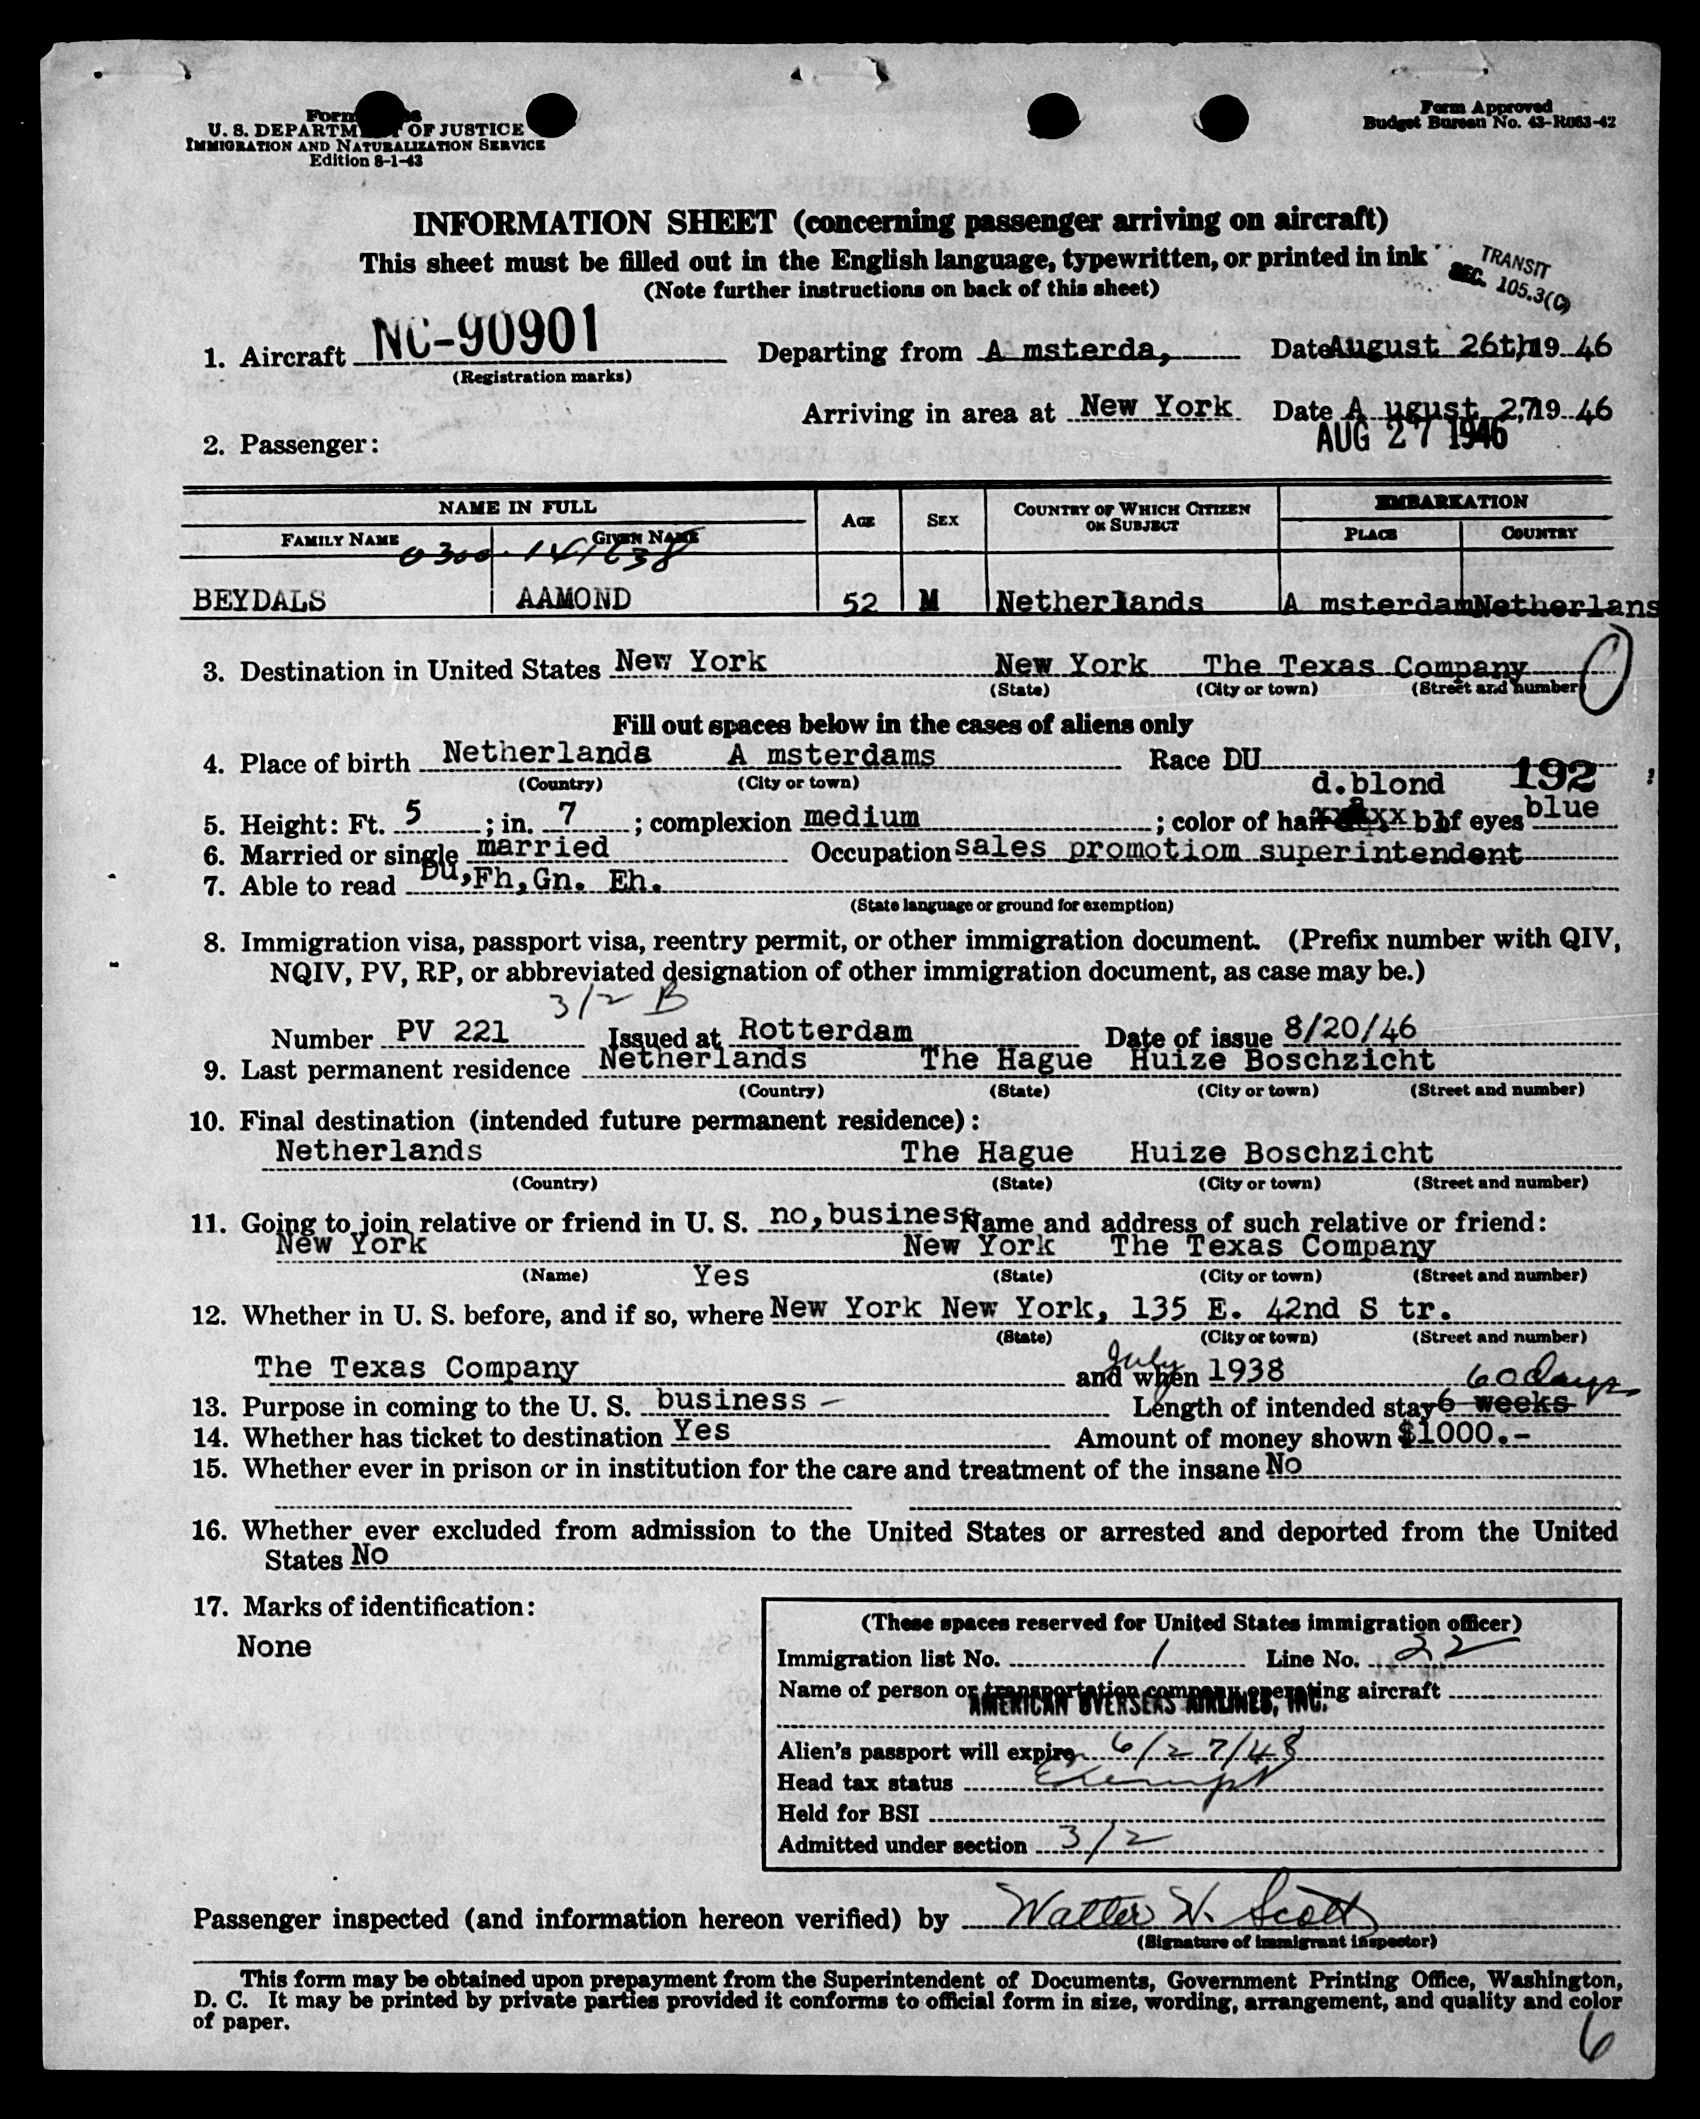 U. S. DEPARTMENT OF JUSTICE
IMMIGRATION AND NATURALIZATION SERVICE
Edition 8-1-43
Form Approved
Budget Bureau No. 43-R063-42
INFORMATION SHEET (concerning passenger arriving on aircraft)
This sheet must be filled out in the English language, typewritten, or printed in ink
(Note further instructions on back of this sheet)
TRANSIT
SEC. 105.3(C)
1. Aircraft NC-90901 Departing from A msterda, Date August 26th, 19 46
(Registration marks)
Arriving in area at New York Date A ugust 27, 19 46
AUG 27 1946
2. Passenger:
NAME IN FULL AGE SEX COUNTRY OF WHICH CITIZEN OR SUBJECT EMBARKATION
FAMILY NAME GIVEN NAME PLACE COUNTRY
0300-141638
BEYDALS AAMOND 52 M Netherlands A msterdam Netherlans
3. Destination in United States New York New York The Texas Company
(State) (City or town) (Street and number)
Fill out spaces below in the cases of aliens only
4. Place of birth Netherlands A msterdams Race DU
(Country) (City or town)
d.blond 192
5. Height: Ft. 5 ; in. 7 ; complexion medium ; color of hair of eyes blue
6. Married or single married Occupation sales promotiom superintendent
7. Able to read Du,Fh,Gn. Eh.
(State language or ground for exemption)
8. Immigration visa, passport visa, reentry permit, or other immigration document. (Prefix number with QIV,
NQIV, PV, RP, or abbreviated designation of other immigration document, as case may be.)
3/2 B
Number PV 221 Issued at Rotterdam Date of issue 8/20/46
9. Last permanent residence Netherlands The Hague Huize Boschzicht
(Country) (State) (City or town) (Street and number)
10. Final destination (intended future permanent residence):
Netherlands The Hague Huize Boschzicht
(Country) (State) (City or town) (Street and number)
11. Going to join relative or friend in U. S. no,business Name and address of such relative or friend:
New York New York The Texas Company
(Name) (State) (City or town) (Street and number)
Yes
12. Whether in U. S. before, and if so, where New York New York, 135 E. 42nd S tr.
(State) (City or town) (Street and number)
The Texas Company and when July 1938
60 days
13. Purpose in coming to the U. S. business - Length of intended stay 6 weeks
14. Whether has ticket to destination Yes Amount of money shown $1000.-
15. Whether ever in prison or in institution for the care and treatment of the insane No
16. Whether ever excluded from admission to the United States or arrested and deported from the United
States No
17. Marks of identification:
None
(These spaces reserved for United States immigration officer)
Immigration list No. 1 Line No. 22
Name of person or transportation company operating aircraft
AMERICAN OVERSEAS AIRLINES, INC.
Alien's passport will expire 6/27/48
Head tax status Exempt
Held for BSI
Admitted under section 3/2
Passenger inspected (and information hereon verified) by Walter W. Scott
(Signature of immigrant inspector)
This form may be obtained upon prepayment from the Superintendent of Documents, Government Printing Office, Washington,
D. C. It may be printed by private parties provided it conforms to official form in size, wording, arrangement, and quality and color
of paper.
6